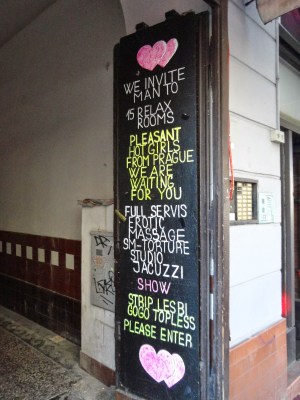 WE INVITE
MAN TO
15 RELAX
ROOMS
PLEASANT
HOT GIRLS
FROM PRAGUE
WE ARE
WAITING
FOR YOU
FULL SERVIS
EROTIC
MASSAGE
SM-TORTURE
STUDIO
JACUZZI
SHOW
STRIP LESBI
GOGO TOPLESS
PLEASE ENTER